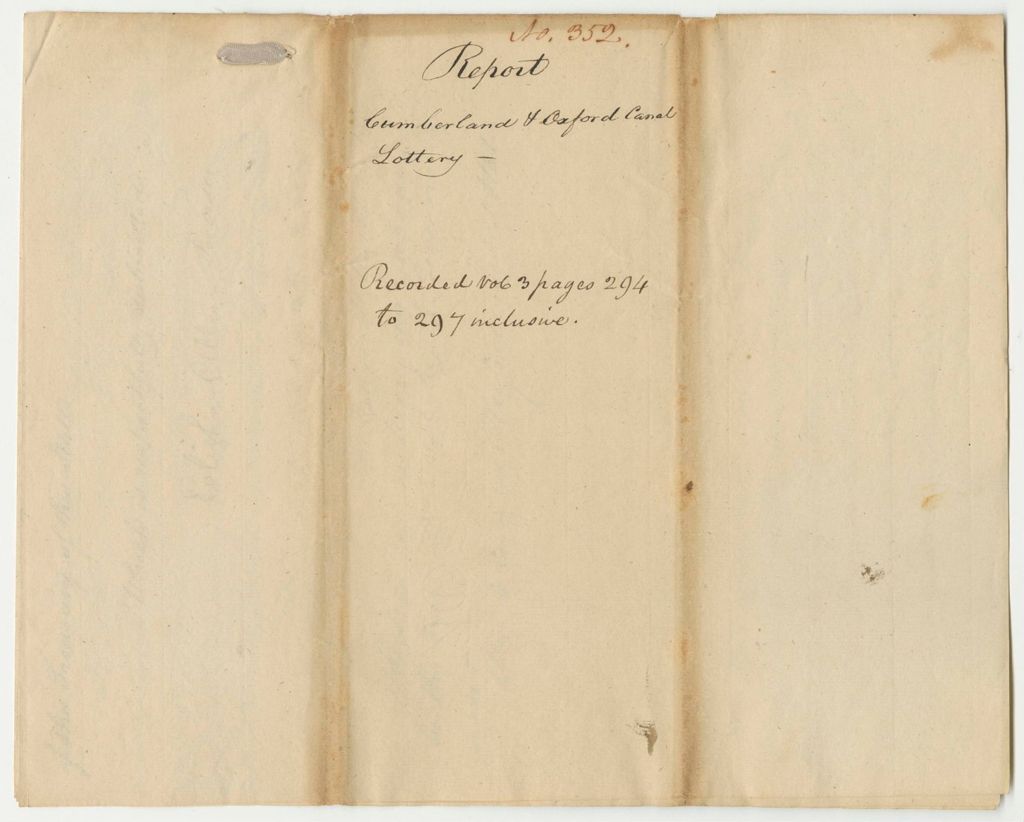 No. 352.
Report
Cumberland & Oxford Canal
Lottery —
Recorded vol 3 pages 294
to 297 inclusive.